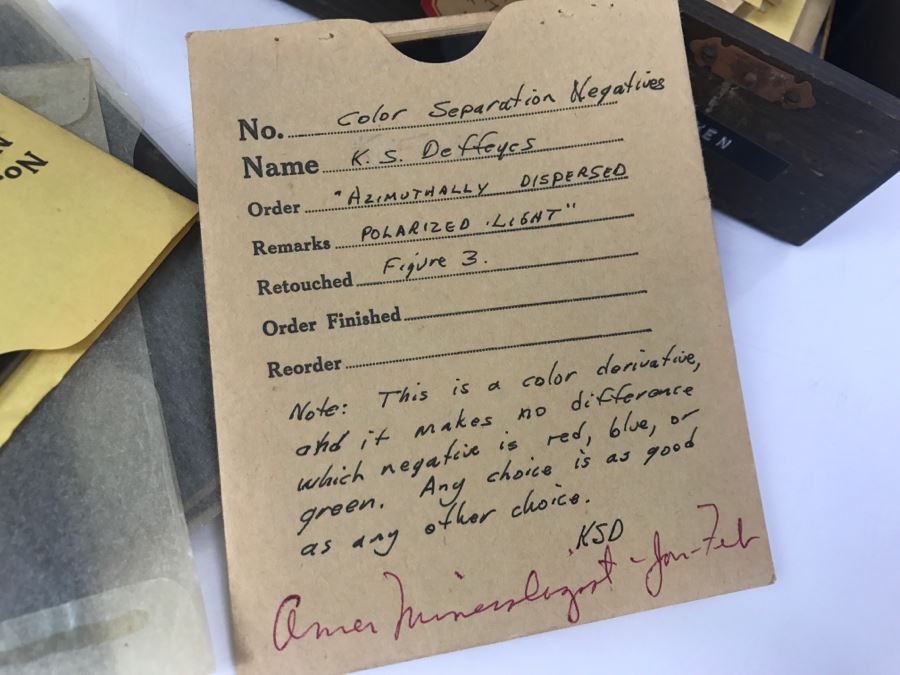 No. Color Separation Negatives
Name K. S. Deffeyes
Order "AZIMUTHALLY DISPERSED
Remarks POLARIZED LIGHT"
Retouched Figure 3.
Order Finished
Reorder
Note: This is a color derivative,
and it makes no difference
which negative is red, blue, or
green. Any choice is as good
as any other choice.
KSD
Amer Mineralogist - Jan-Feb
No.
EN